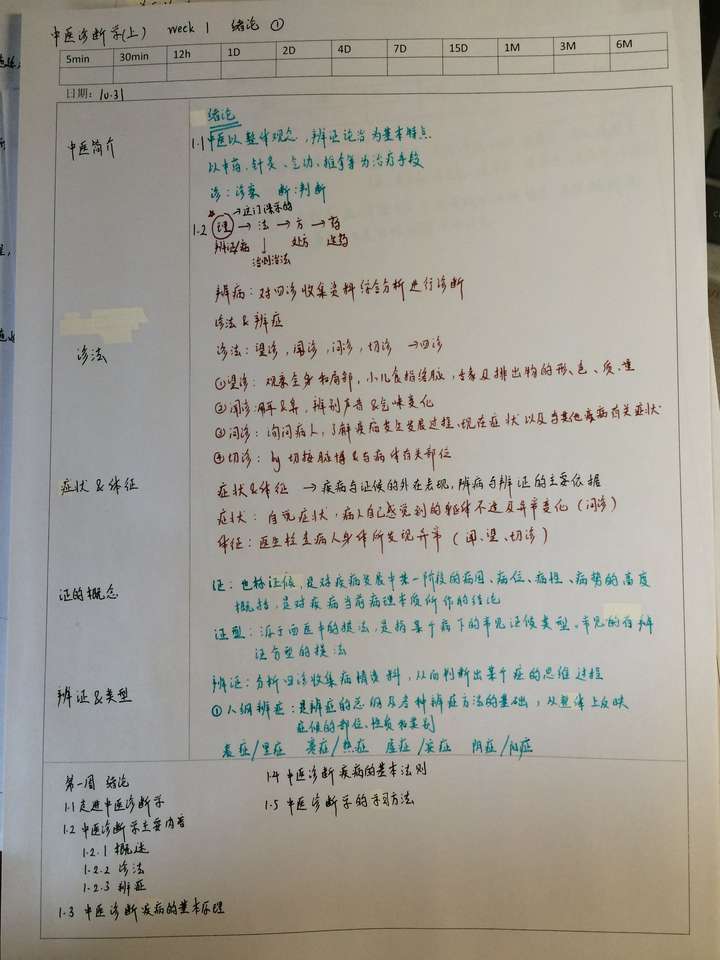 中医诊断学(上) week 1 绪论 ①
5min 30min 12h 1D 2D 4D 7D 15D 1M 3M 6M
日期: 10.31
绪论
中医简介
1.1 中医以整体观念,辨证论治为基本特点
以中药、针灸、气功、推拿等为治疗手段
诊:诊察 断:判断
→这门课示的
1.2 理 → 法 → 方 → 药
辨证/病 ↓ 处方 选药
治则治法
辨病:对四诊收集资料综合分析进行诊断
诊法&辨症
诊法
诊法:望诊,闻诊,问诊,切诊 →四诊
①望诊:观察全身和局部,小儿食指络脉,舌象及排出物的形、色、质、量
②闻诊:用耳&鼻,辨别声音&气味变化
③问诊:询问病人,了解疾病发生发展过程、现在症状以及与其他疾病有关症状
④切诊:by 切按脉搏&与病体有关部位
症状&体征
症状&体征 → 疾病与证候的外在表现,辨病与辨证的主要依据
症状:自觉症状,病人自己感觉到的身体不适及异常变化(问诊)
体征:医生检查病人身体所发现异常(闻、望、切诊)
证的概念
证:也称证候,是对疾病发展中某一阶段的病因、病位、病性、病势的高度
概括,是对疾病当前病理本质所作的结论
证型:源于西医中的提法,是指某个病下的常见证候类型。常见的有辨
证分型的提法
辨证&类型
辨证:分析四诊收集病情资料,从而判断出某个症的思维过程
①八纲辨症:是辨症的总纲及各种辨症方法的基础,从整体上反映
症候的部位、性质和类别
表症/里症 寒症/热症 虚症/实症 阴症/阳症
第一周 绪论
1.1 走进中医诊断学
1.2 中医诊断学主要内容
1.2.1 概述
1.2.2 诊法
1.2.3 辨症
1.3 中医诊断疾病的基本原理
1.4 中医诊断疾病的基本法则
1.5 中医诊断学的学习方法